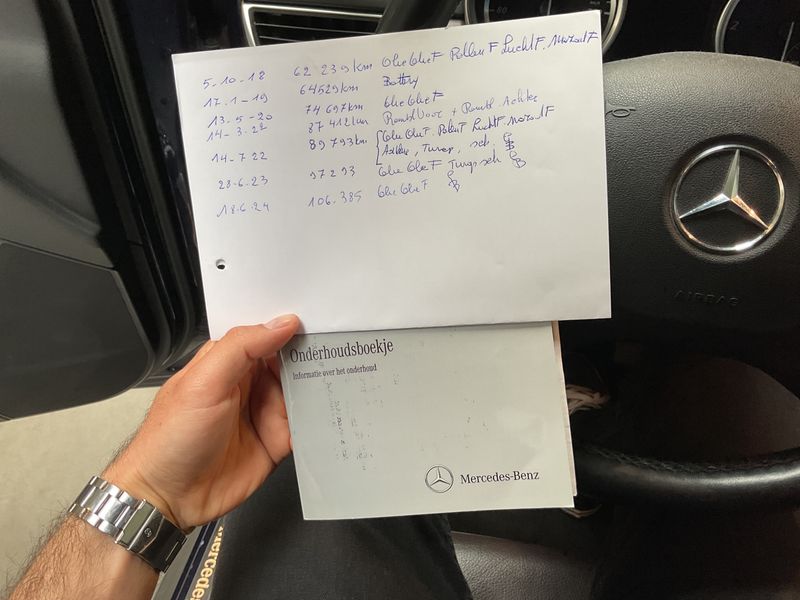 5-10-18 62 239km Olie OlieF Pollen F LuchtF.
17.1-19 64529km Battery
13.5-20 74 697km Olie OlieF
14-3.22 87 412km Voor + Rembl. Achter
14-7 22 89 793km Olie OlieF. PollenF LuchtF
sch.
28-6.23 97293 Olie OlieF sch
18.6.24 106.385 Olie OlieF
Onderhoudsboekje
Informatie over het onderhoud
Mercedes-Benz
AIRBAG
80
2